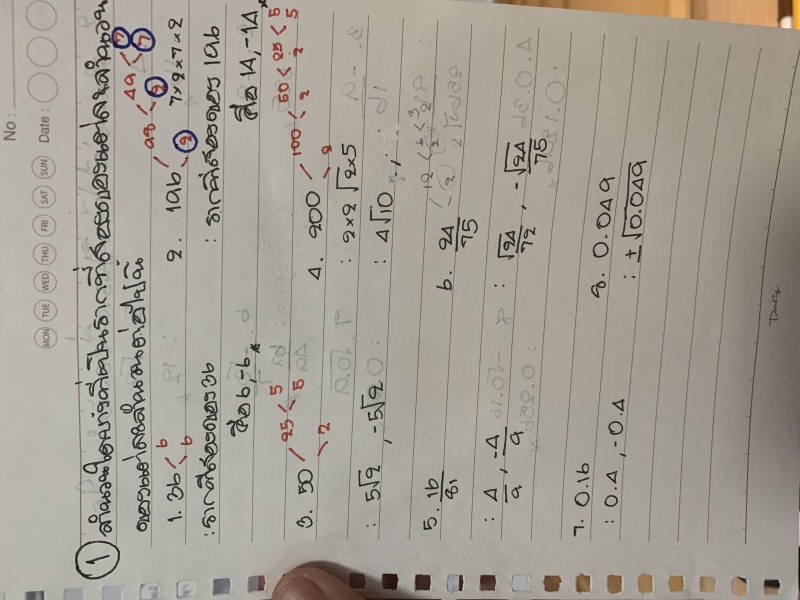 No :
MON TUE WED THU FRI SAT SUN Date :
① จำนวนใดบ้างที่เป็นรากที่สองของแต่ละจำนวน
ของแต่ละจำนวนต่อไปนี้
1. 36 < 6 6
2. 196 < 98 < 49 < 7 7 2 2 7×2×7×2
: รากที่สองของ 36
: รากที่สองของ 196
คือ 6, -6
คือ 14, -14
3. 50 < 25 < 5 5 2
4. 200 < 100 < 50 < 25 < 5 5 2 2 2
: 5√2 , -5√2
: 2×2√2×5
: 4√10
5. 16/81
6. 24/75 12 < 6 < 3 2 2 2
: 4/9 , -4/9
: √24/72 , -√24/75
7. 0.16
8. 0.049
: 0.4 , -0.4
: ±√0.049